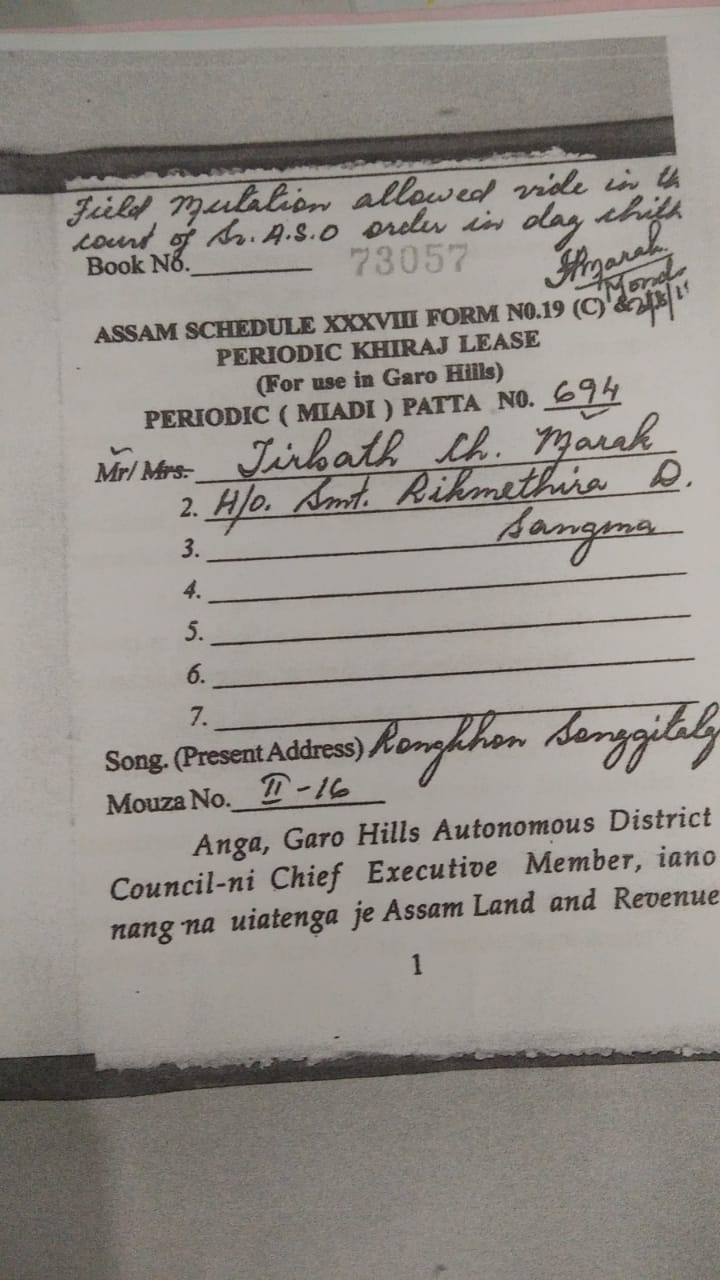 Field Mutation allowed vide in th
court of Sr. A.S.O order in dag chith
Book No. 73057
Marak
ASSAM SCHEDULE XXXVIII FORM N0.19 (C) &
PERIODIC KHIRAJ LEASE
(For use in Garo Hills)
PERIODIC ( MIADI ) PATTA N0. 694
Mr/ Mrs. Tirbath Ch. Marak
2. H/o. Smt. Rikmethira D.
3. Sangma
4.
5.
6.
7.
Song. (Present Address) Rongkhon Songgital
Mouza No. II-16
Anga, Garo Hills Autonomous District
Council-ni Chief Executive Member, iano
nang·na uiatenga je Assam Land and Revenue
1